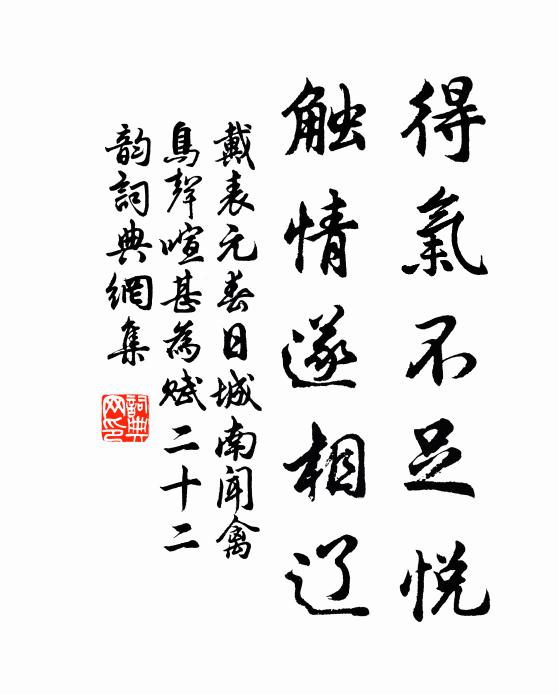 得氣不足悅
触情遂相辽
戴表元春日城南闻禽
鳥聲喧甚為赋二十二
韵詞典網集
詞典
网印